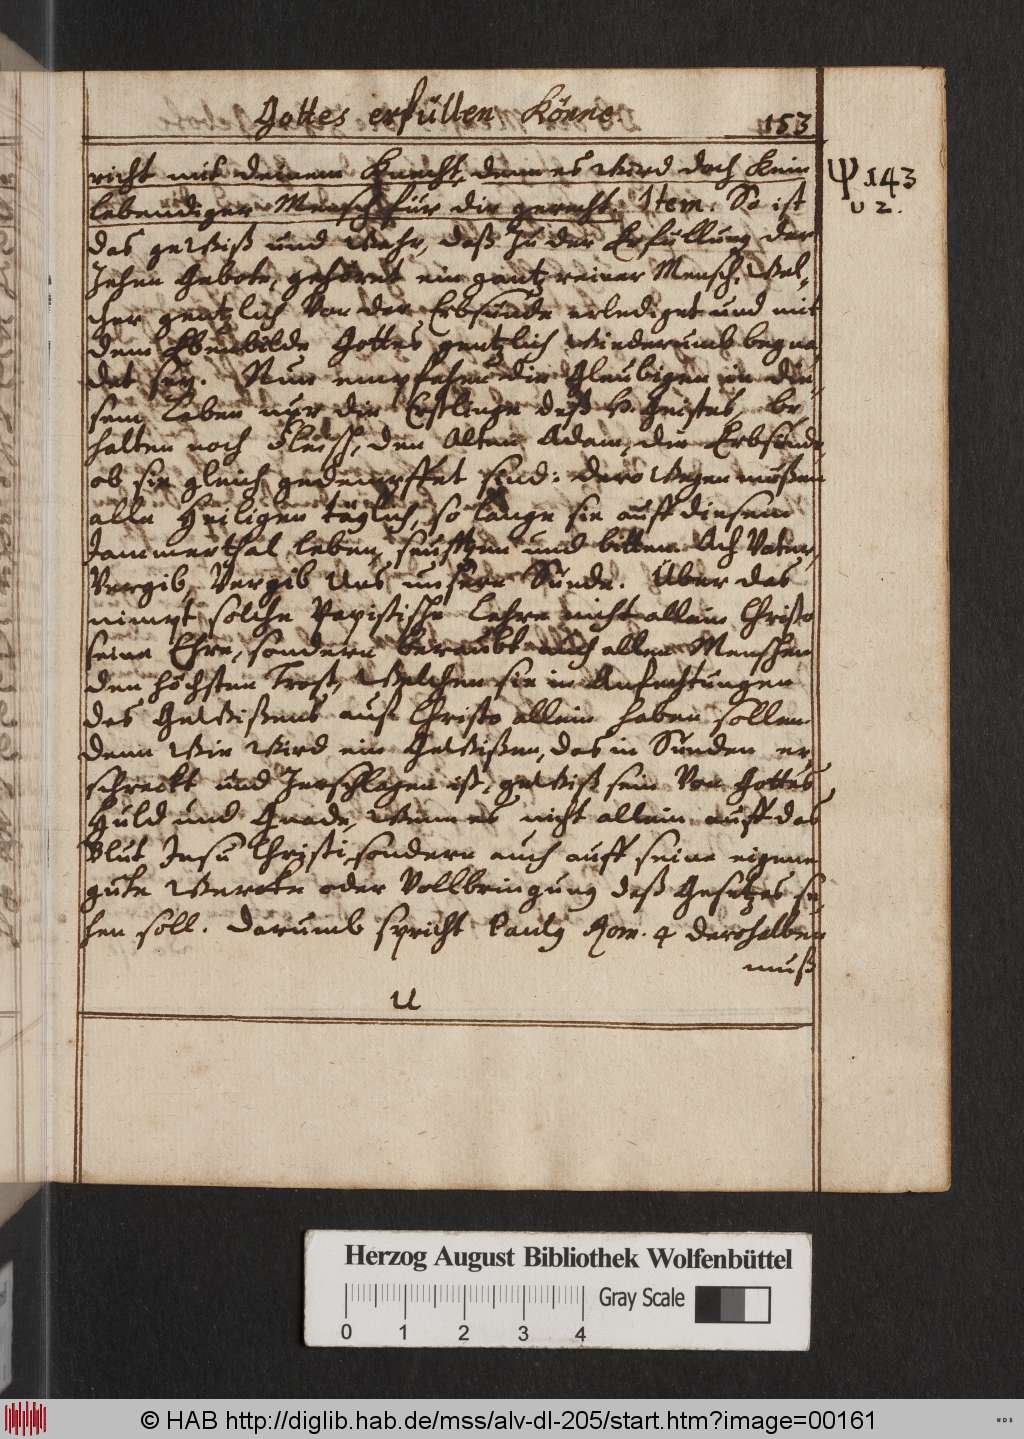 Gottes erfüllen Könne.
153
richt mit deinem Knecht, denn es wird doch Kein
lebendiger Mensch für dir gerecht. Item. So ist
das gewiß und wahr, daß zu der Erfüllung der
Zehen Gebote, gehöret ein gantz reiner Mensch, wel,
cher gentzlich Von der Erbsünde erlediget und mit
dem Ebenbilde Gottes gentzlich wiederumb begna,
det sey. Nun empfahen die Glaubigen in die,
sem leben nur die Erstlinge deß H. Geistes, be
halten noch Fleisch, den Alten Adam, die Erbsünde,
ob sie gleich gedempffet sind: dero wegen müßen
alle Heiligen täglich, so lange sie auff diesem
Jammerthal leben, seufftzen und bitten Ach Vater,
Vergib, Vergib Uns unsere Sünde. Über das
nimpt solche Papistische Lehre nicht allein Christo
seine Ehre, sondern beraubt auch allen Menschen
den höchsten Trost, Welchen sie in Anfechtungen
des Gewißens auß Christo allein haben sollen.
denn Wie Wird ein Gewißen, das in Sünden er,
schreckt und Zerschlagen ist, gewiß sein Von Gottes
Huld und Gnade, Wenn es nicht allein auff das
Blut Jesu Christi, sondern auch auff seine eigene
gute Wercke oder Vollbringung deß Gesetzes se,
hen soll. Darumb spricht Paulus Rom. 4 derohalben
muß
U
Ψ 143
v 2.
Herzog August Bibliothek Wolfenbüttel
0 1 2 3 4
Gray Scale
© HAB http://diglib.hab.de/mss/alv-dl-205/start.htm?image=00161
WDB